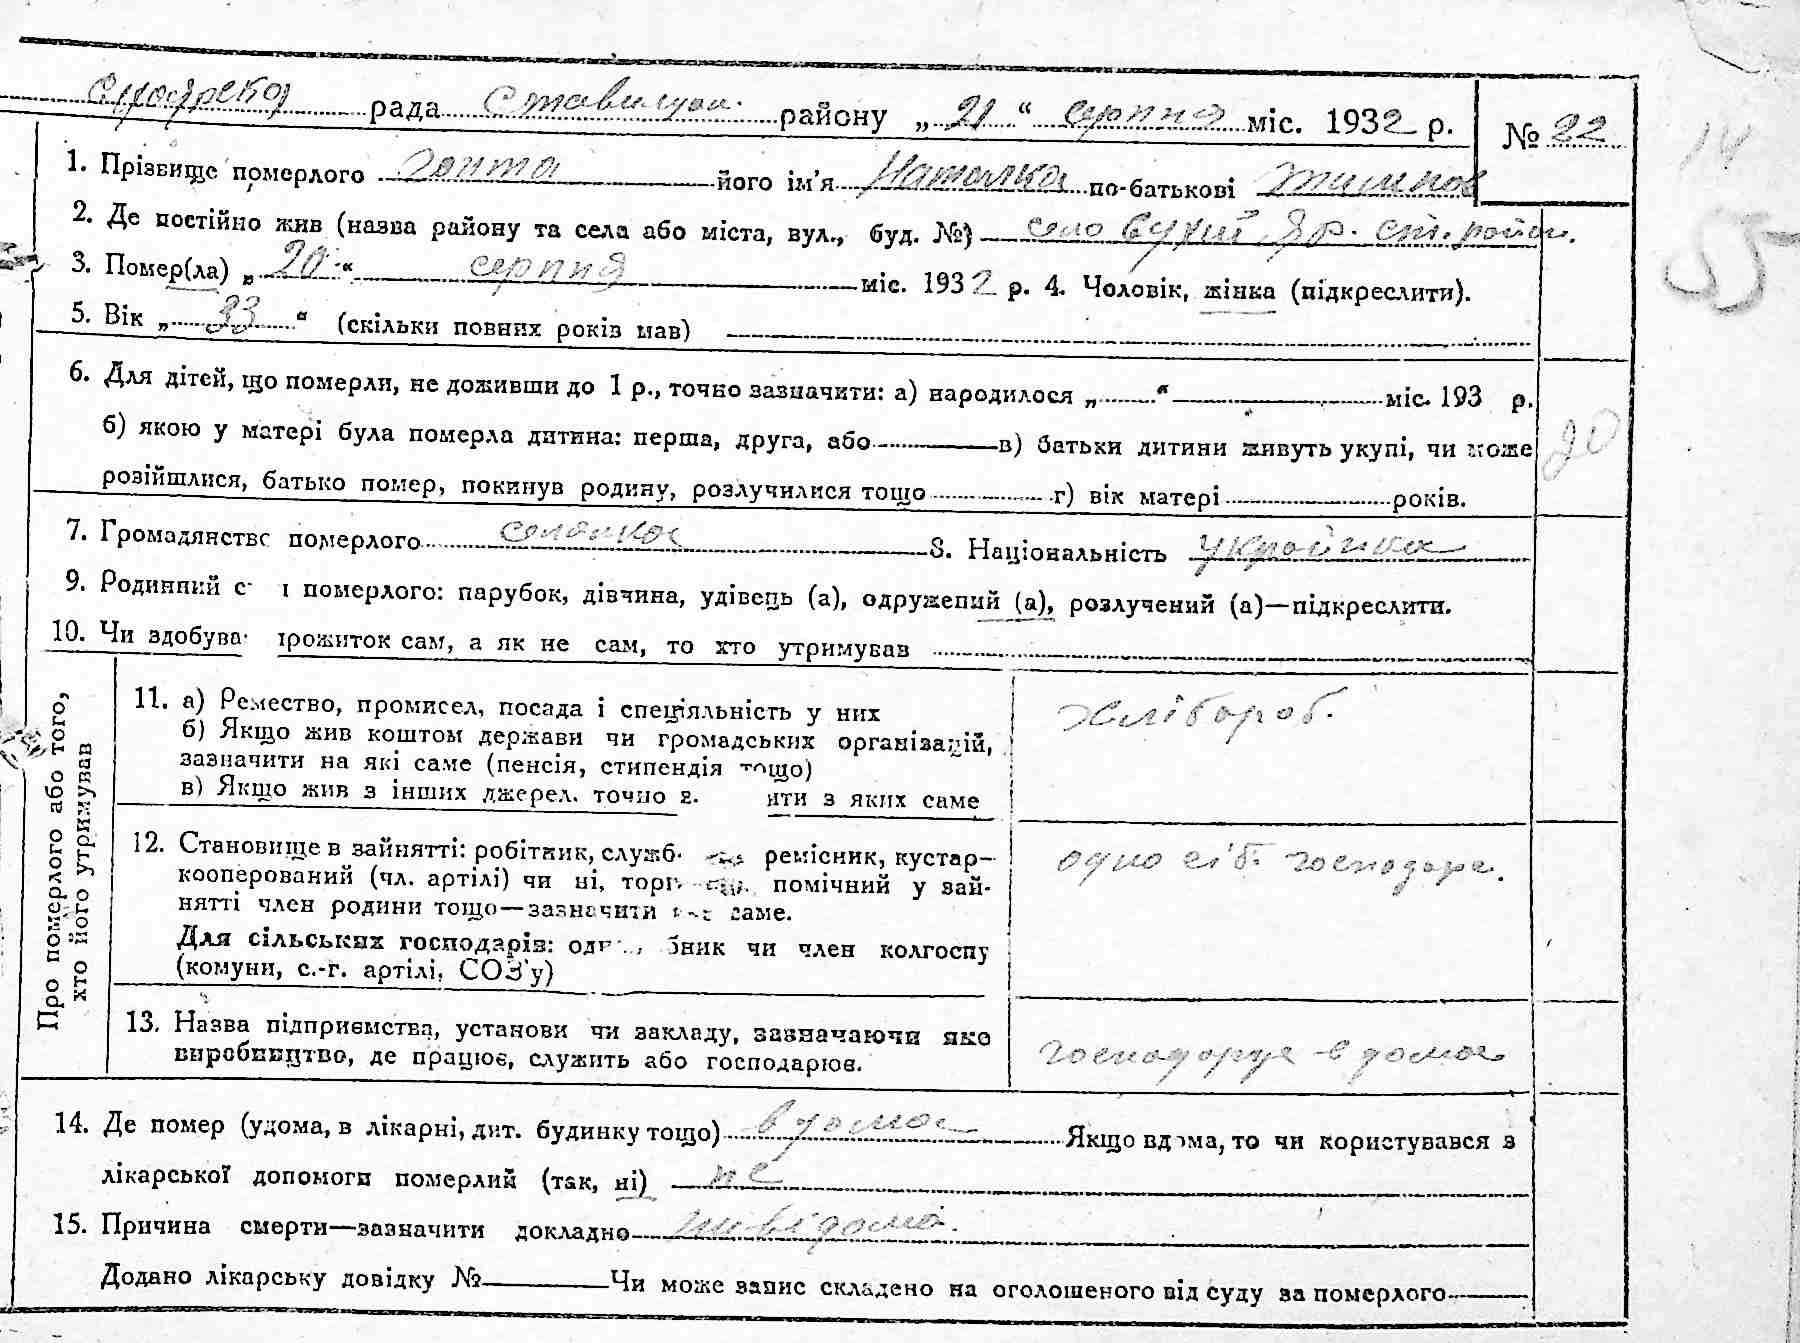 рада Ставищан. району „21“ серпня міс. 1932 р. № 22
1. Прізвище померлого Гонта його ім'я Наталка по-батькові
2. Де постійно жив (назва району та села або міста, вул., буд. №) село Сухий Яр. ст. район.
3. Помер(ла) „20“ серпня міс. 1932 р. 4. Чоловік, жінка (підкреслити).
5. Вік „33“ (скільки повних років мав)
6. Для дітей, що померли, не доживши до 1 р., точно зазначити: а) народилося „ “ міс. 193 р.
б) якою у матері була померла дитина: перша, друга, або в) батьки дитини живуть укупі, чи може
розійшлися, батько помер, покинув родину, розлучилися тощо г) вік матері років.
7. Громадянство померлого селянка 8. Національність українка
9. Родинний померлого: парубок, дівчина, удівець (а), одружений (а), розлучений (а)—підкреслити.
10. Чи здобував прожиток сам, а як не сам, то хто утримував
Про померлого або того,
хто його утримував
11. а) Ремество, промисел, посада і спеціяльність у них
б) Якщо жив коштом держави чи громадських організацій,
зазначити на які саме (пенсія, стипендія тощо)
в) Якщо жив з інших джерел, точно з яких саме
хлібороб.
12. Становище в зайнятті: робітник, служб. ремісник, кустар-
кооперований (чл. артілі) чи ні, торг. помічний у зай-
нятті член родини тощо—зазначити саме.
Для сільських господарів: чи член колгоспу
(комуни, с.-г. артілі, СОЗ'у)
одно сіб. господарс.
13. Назва підприємства, установи чи закладу, зазначаючи яке
виробництво, де працює, служить або господарює.
господорує в дома
14. Де помер (удома, в лікарні, дит. будинку тощо) в дома Якщо вдома, то чи користувався з
лікарської допомоги померлий (так, ні) не
15. Причина смерти—зазначити докладно невідома.
Додано лікарську довідку № Чи може запис складено на оголошеного від суду за померлого
14
55
20